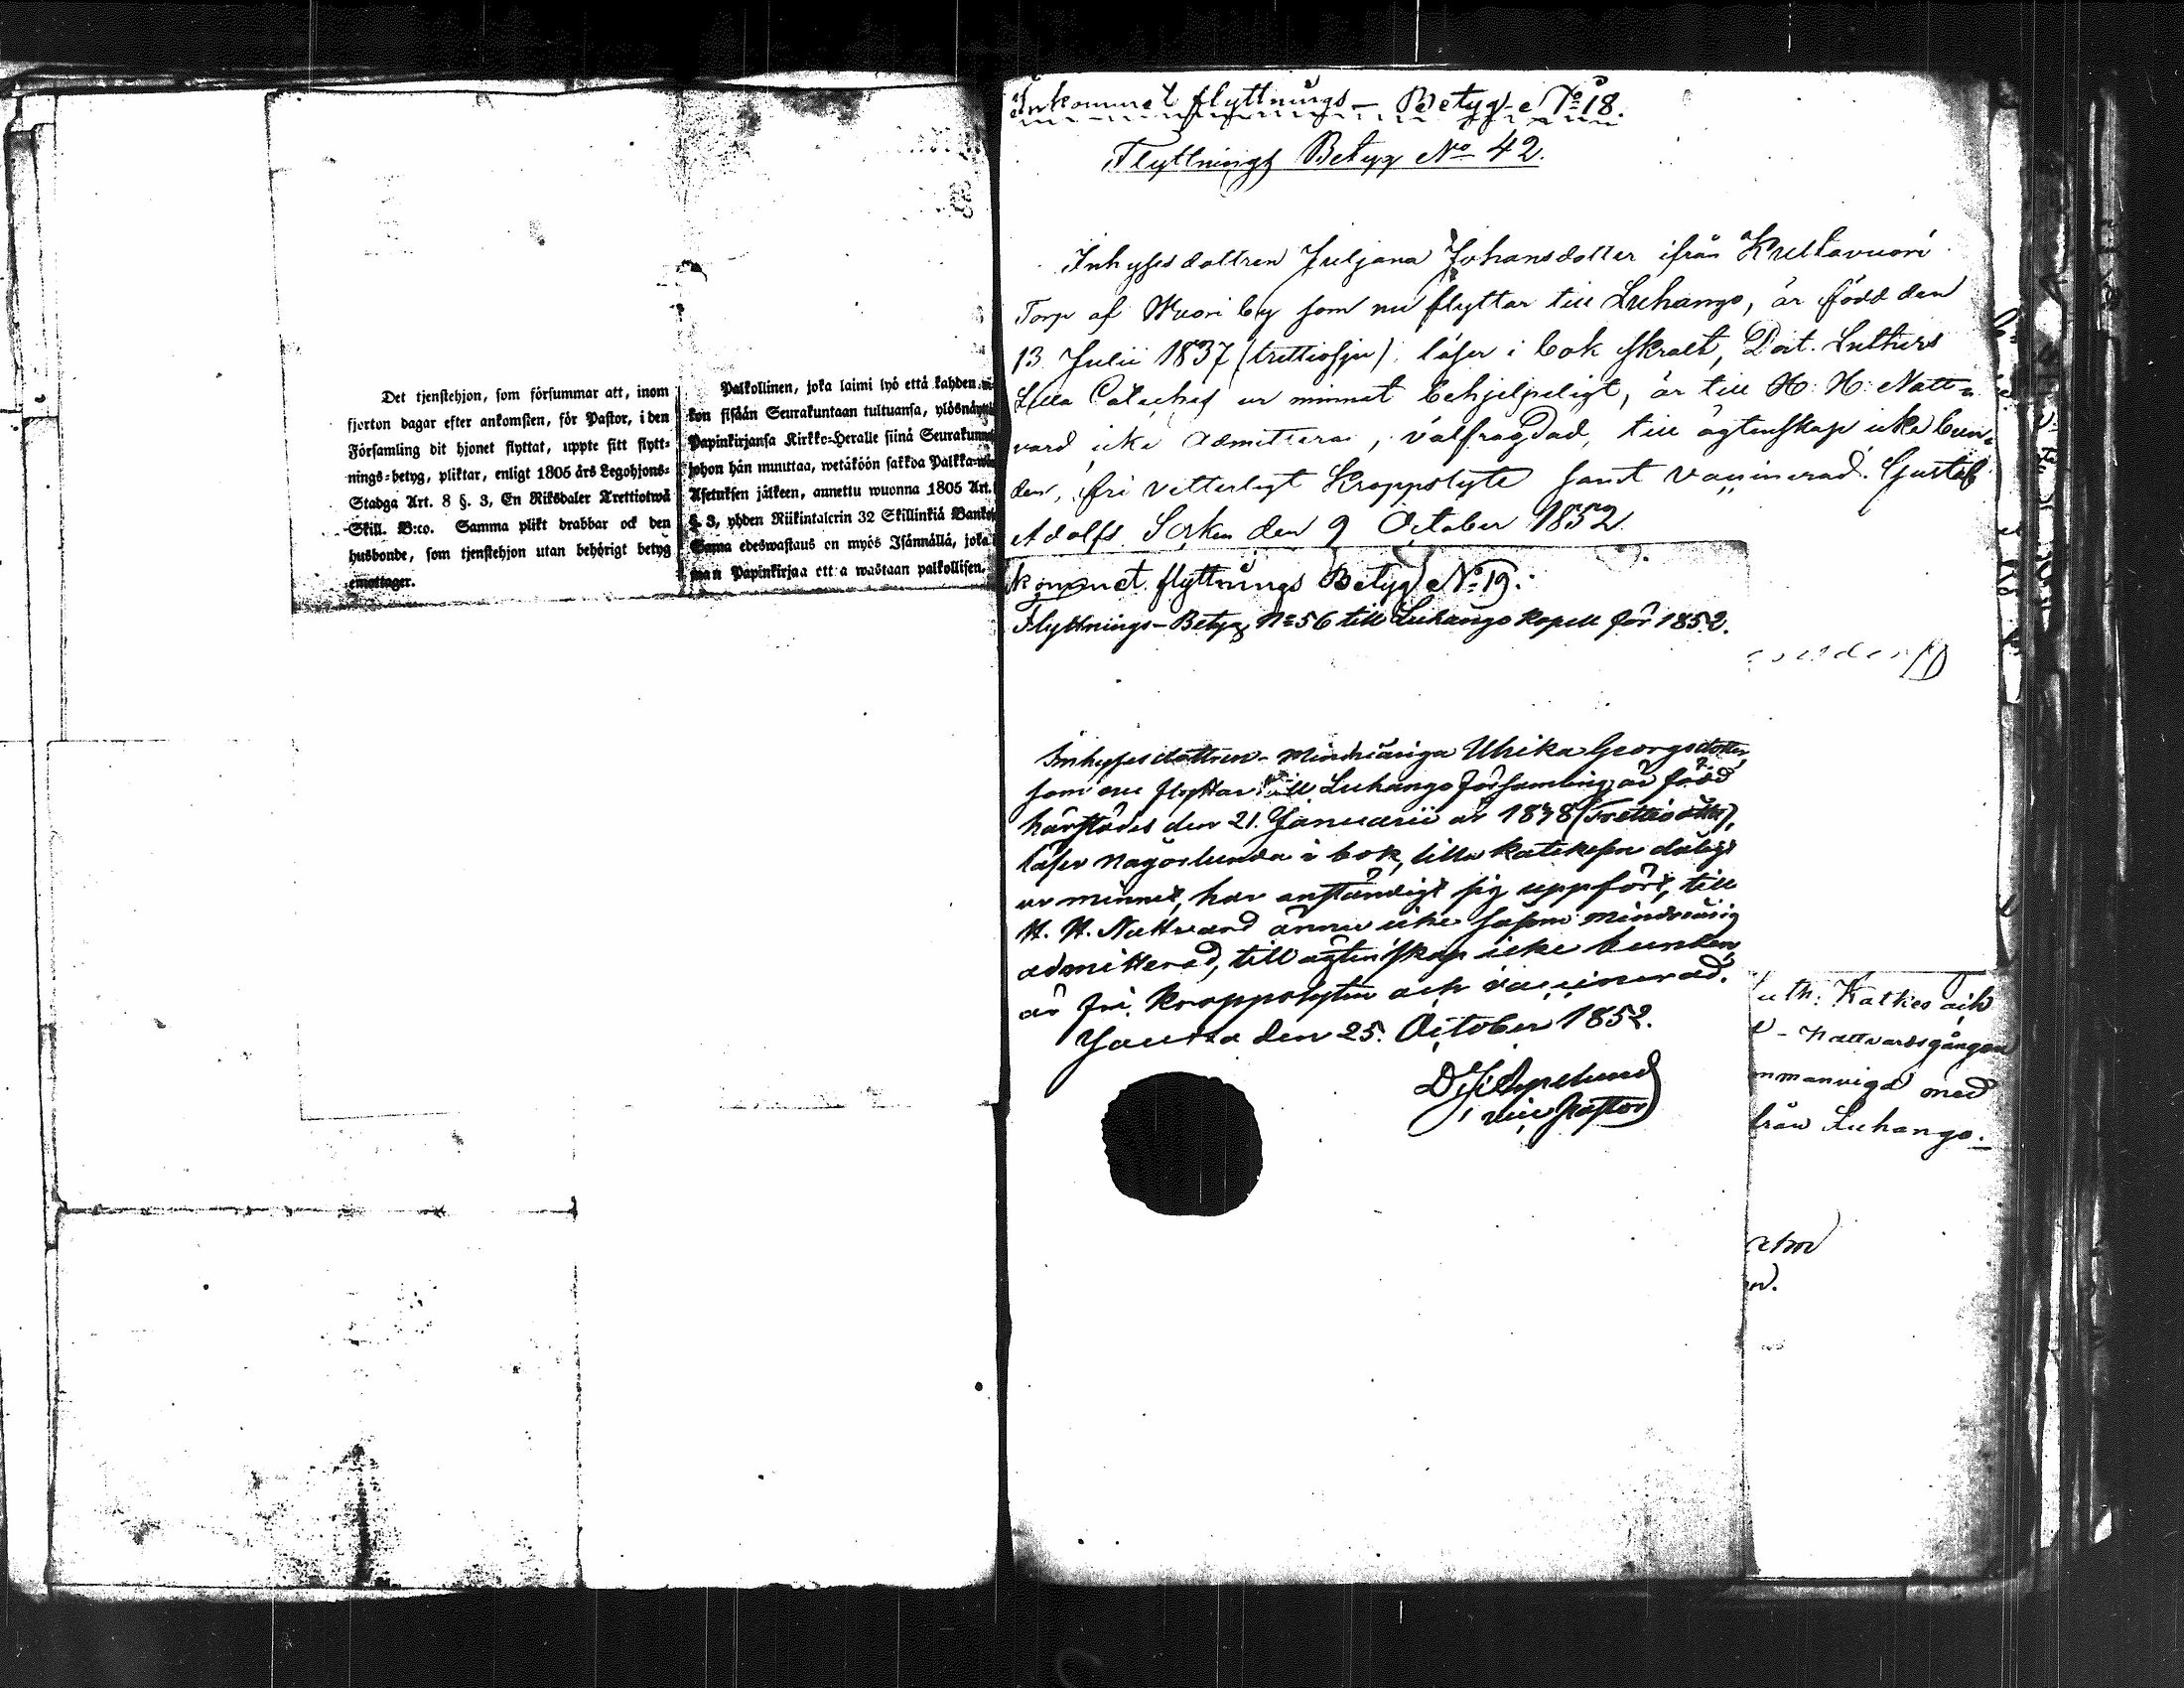 Det tjenstehjon, som försummar att, inom
fjorton dagar efter ankomsten, för Pastor, i den
Församling dit hjonet flyttat, uppte sitt flytt-
nings-betyg, pliktar, enligt 1805 års Legohjons-
Stadga Art. 8 §. 3, En Riksdaler Trettiotwå
Skill. B:co. Samma plikt drabbar ock den
husbonde, som tjenstehjon utan behörigt betyg
emottager.
Palkollinen, joka laimi lyö että kahden
kon sisään Seurakuntaan tultuansa, ylösnäyttä
Papinkirjansa Kirkko-Heralle siinä Seurakunna
johon hän muuttaa, wetäköön sakkoa Palkka-
Asetuksen jälkeen, annettu wuonna 1805 Art.
§. 3, yhden Riikintalerin 32 Skillinkiä Banko
Sama edeswastaus on myös Isännällä, joka
man Papinkirjaa ett a wastaan palkollisen.
Inkommet flyttnings- Betyg No 18.
Flyttnings Betyg No 42.
Inhyses dottren Juljana Johansdotter ifrån Kultavuori
Torp af Wuori by som nu flyttar till Luhango, är född den
13 Julii 1837 (trettiosju), läser i bok skralt, Doct. Luthers
Lilla Cateches ur minnet behjelpeligt, är till H. H. Natt-
vard icke admitterad, välfrägdad, till ägtenskap icke bun-
den, fri vetterligt Kroppslyte samt vaccinerad. Gustaf
Adolfs Sokn den 9 October 1852.
kommet flyttnings Betyg No 19.
Flyttnings-Betyg No 56 till Luhango Kapell för 1852.
Inhysesdottren Minderåriga Ulrika Georgsdotter,
som nu flyttar till Luhango församling, är född
härstädes den 21. Januarii år 1838 (Trettioåtta),
läser någorlunda i bok, lilla katekesen dåligt
ur minnet, har anständigt sig uppfört, till
H. H. Nattvard ännu icke såsom minderårig
admitterad, till ägtenskap icke bunden,
är fri kroppslyten och vaccinerad.
Joutsa den 25. October 1852.
vice Pastor
Luth. Katkes och
Nattvardsgången
mmanvigd med
från Luhango.